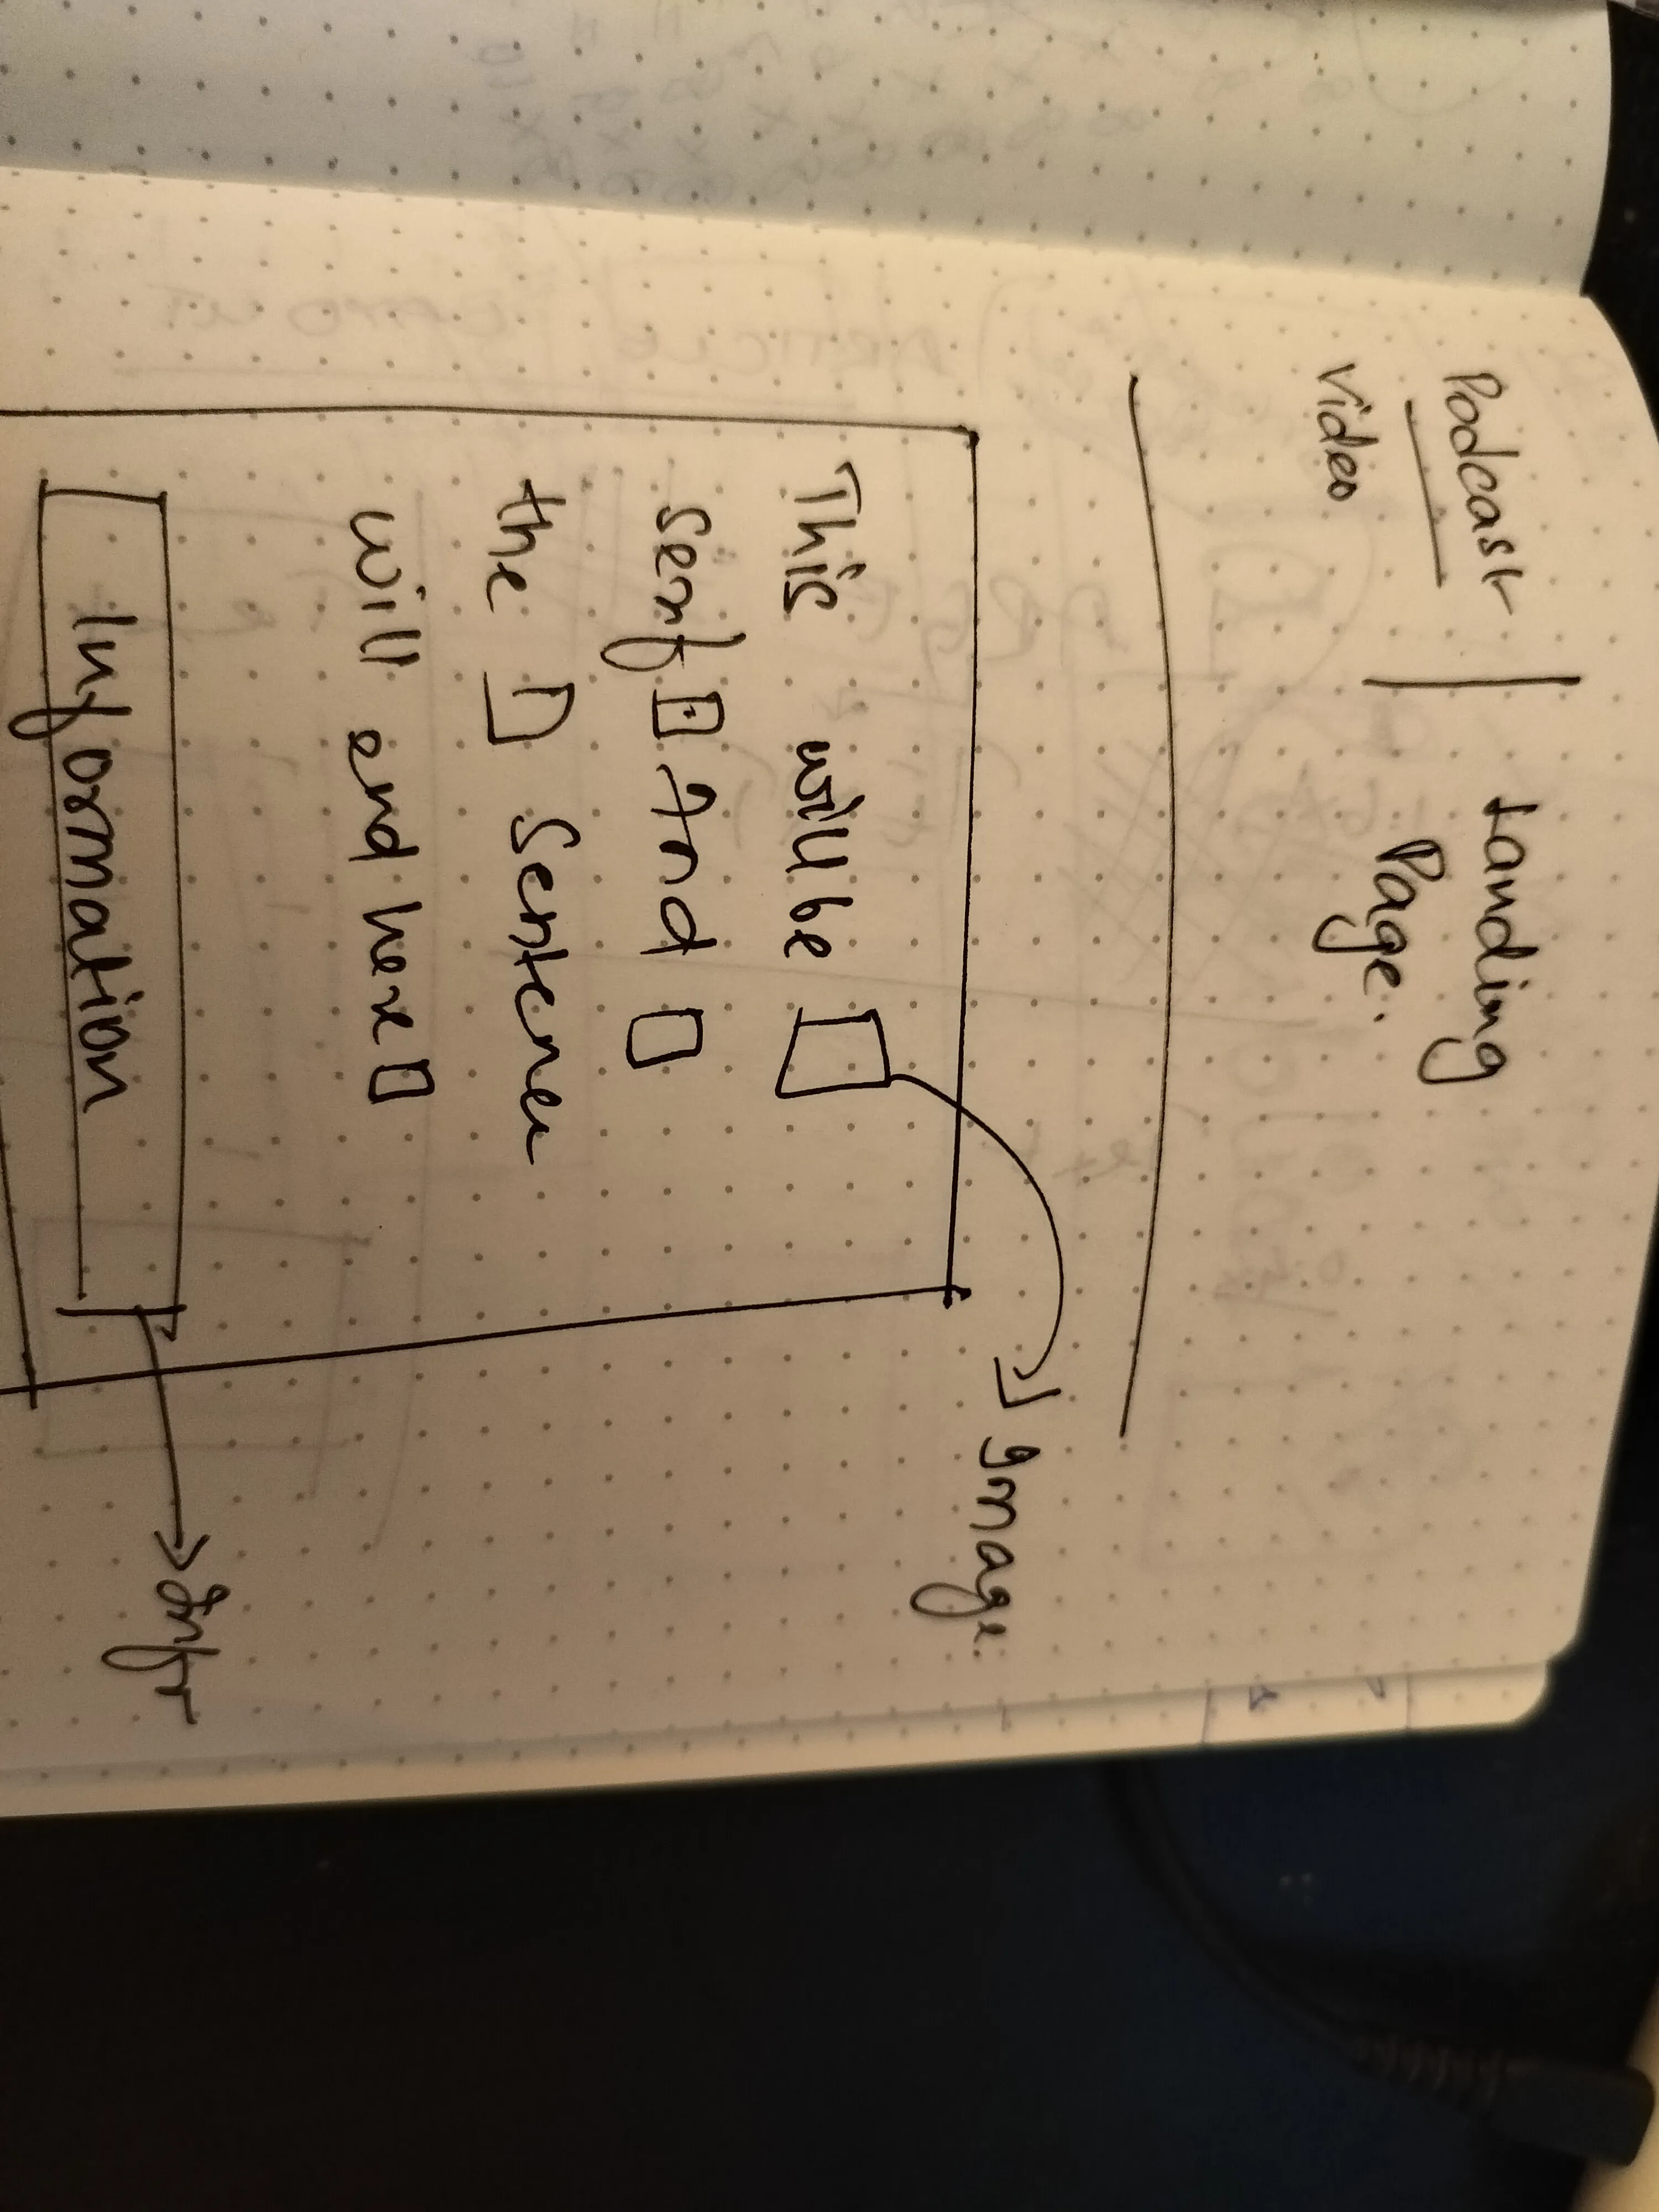 Podcast
video
Landing
Page.
Image.
This will be
And
the sentence
will end here
Information